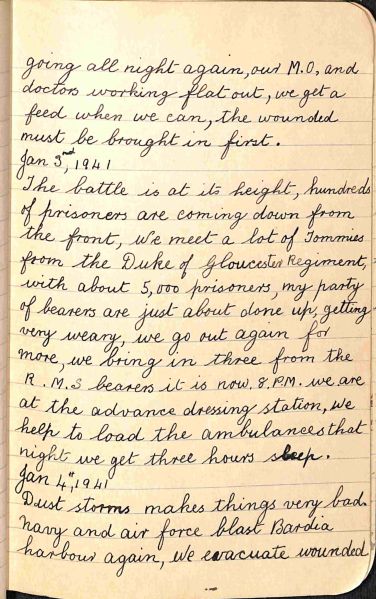 going all night again, our M.O. and
doctors working flat out, we get a
feed when we can, the wounded
must be brought in first.
Jan 3rd, 1941
The battle is at its height, hundreds
of prisoners are coming down from
the front, We meet a lot of Tommies
from the Duke of Gloucester Regiment,
with about 5,000 prisoners, my party
of bearers are just about done up, getting
very weary, we go out again for
more, we bring in three from the
R.M.S bearers it is now 8.P.M. we are
at the advance dressing station, We
help to load the ambulances that
night we get three hours sleep.
Jan 4th, 1941
Dust storms makes things very bad.
Navy and air force blast Bardia
harbour again, We evacuate wounded